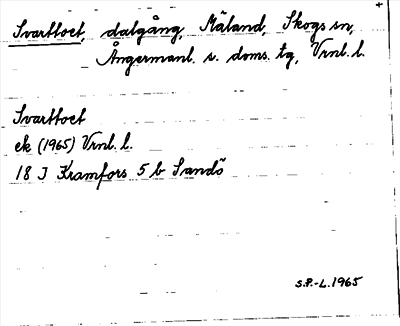 Svarttoet, dalgång, Mäland, Skogs sn,
Ångermanl. s. doms. tg, Vrnl. l.
Svarttoet
ek (1965) Vrnl. l.
18 J Kramfors 5 b Sandö
S.P.-L. 1965